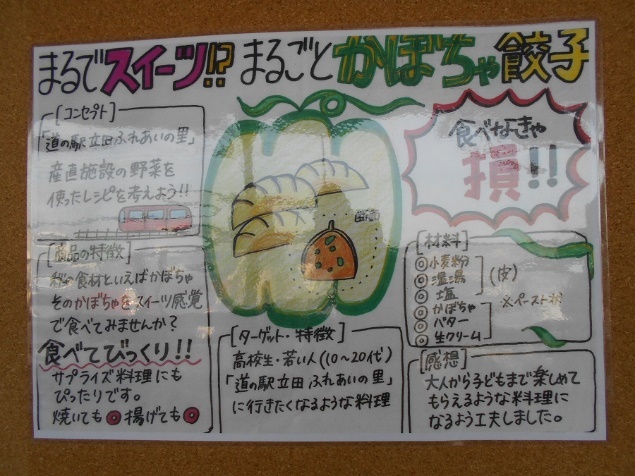 まるでスイーツ!? まるごとかぼちゃ餃子
[コンセプト]
「道の駅立田ふれあいの里」
産直施設の野菜を
使ったレシピを考えよう!!
食べなきゃ
損!!
断面
[商品の特徴]
秋の食材といえばかぼちゃ
そのかぼちゃをスイーツ感覚
で食べてみませんか?
食べてびっくり!!
サプライズ料理にも
ぴったりです。
焼いても◎揚げても◎
[ターゲット・特徴]
高校生・若い人(10~20代)
「道の駅立田ふれあいの里」
に行きたくなるような料理
[材料]
◎小麦粉
◎温湯
◎塩
(皮)
◎かぼちゃ
◎バター
◎生クリーム
※ペースト状
[感想]
大人から子どもまで楽しめて
もらえるような料理に
なるよう工夫しました。